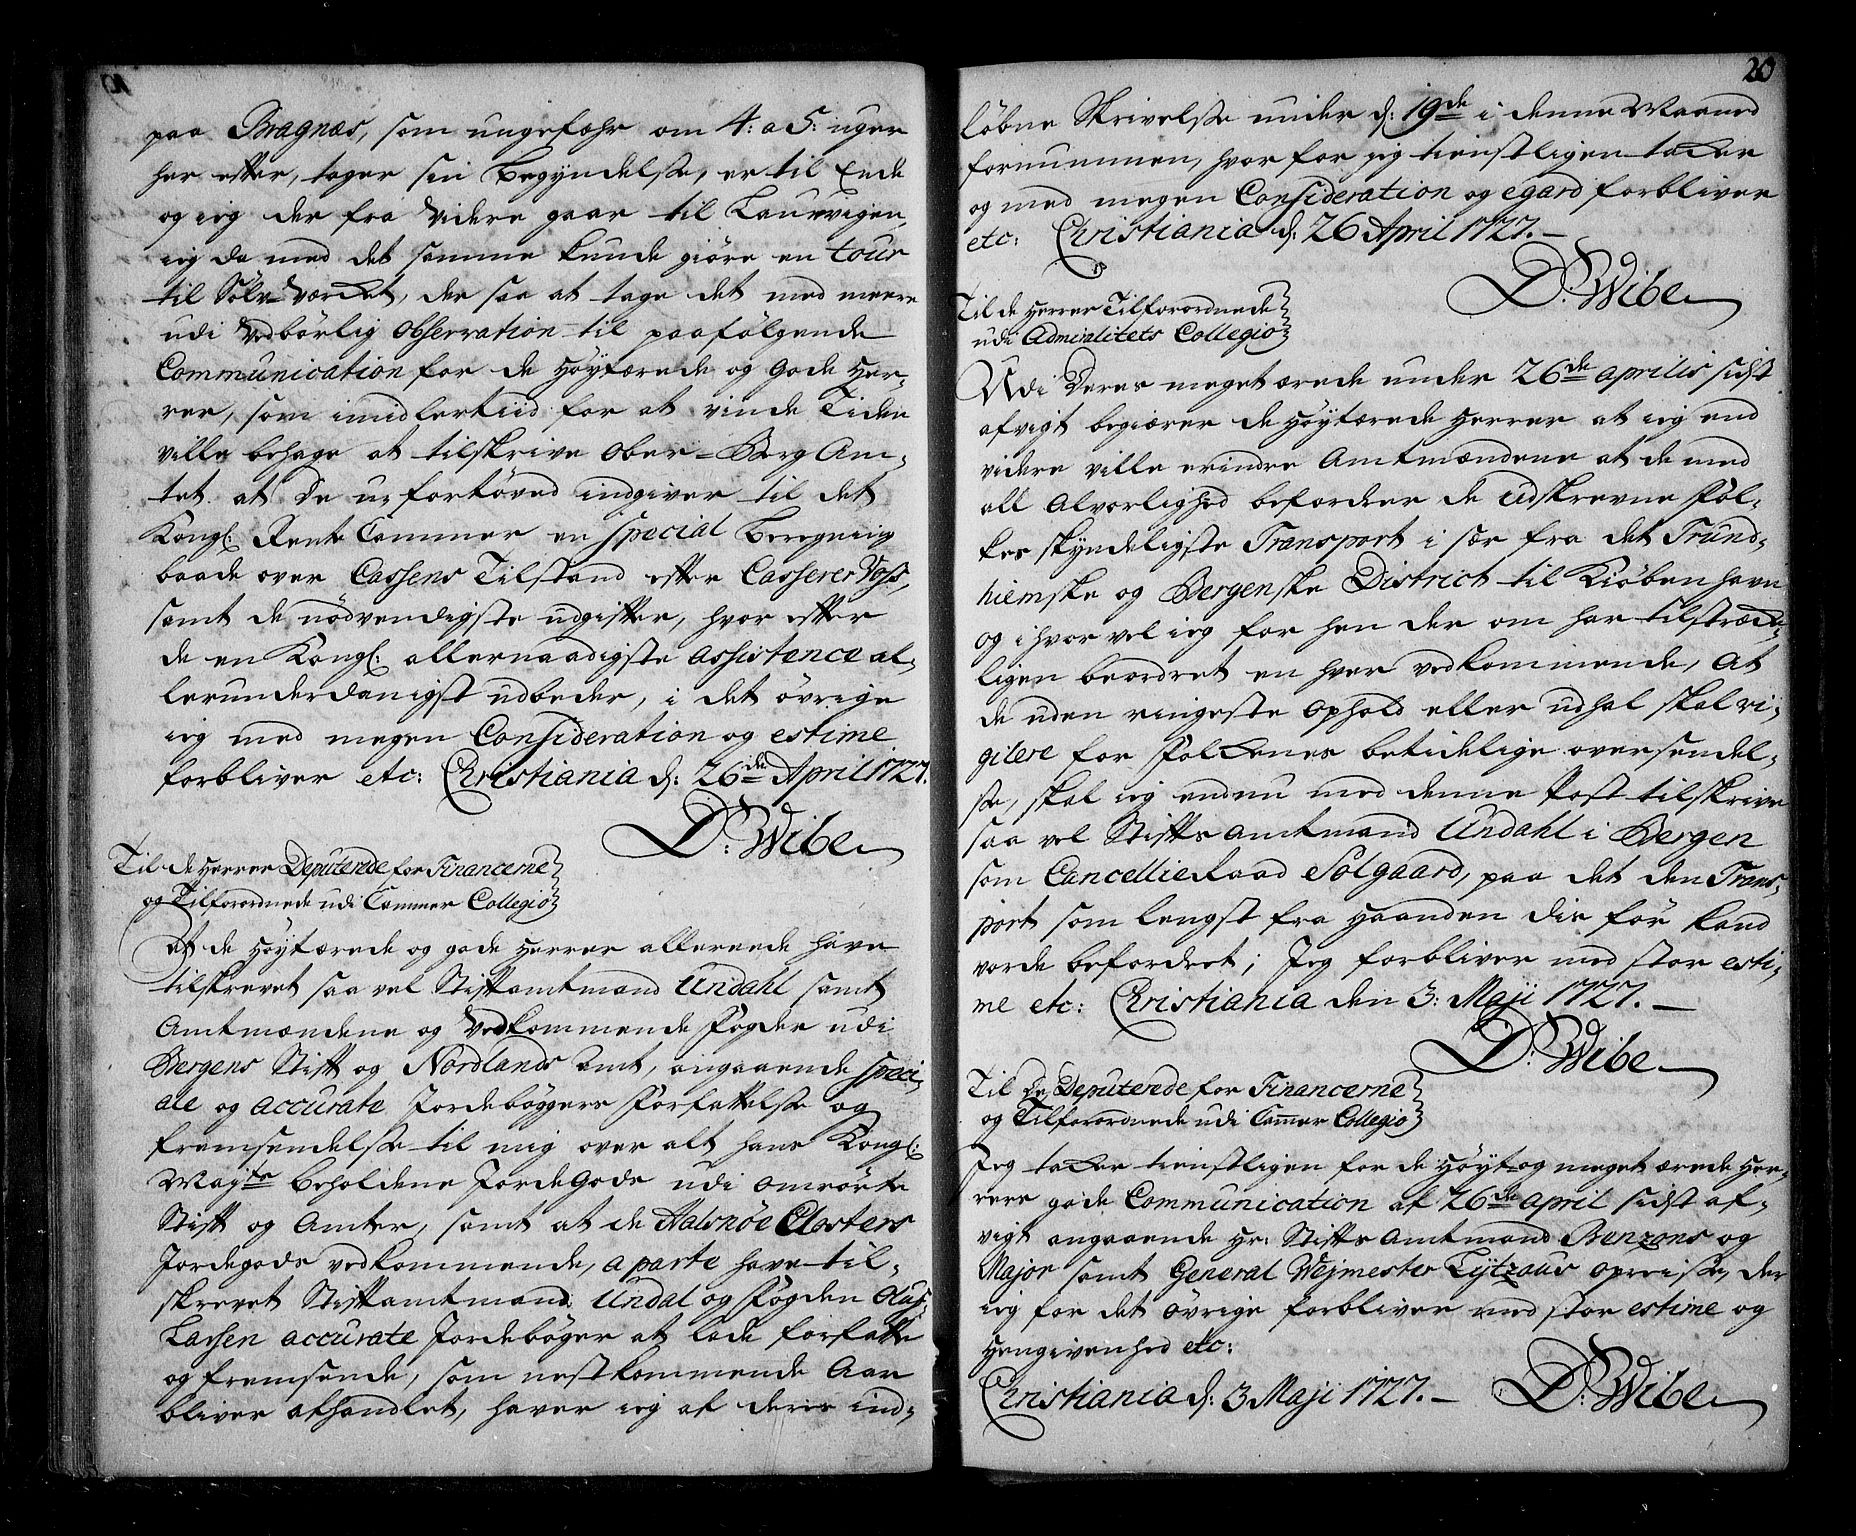 paa Bragnæs, som ungefæhr om 4: a 5: uger
her efter, tager sin begyndelse, er til Ende
og ieg der fra videre gaar til Laurvigen
ieg da med det samme kunde giöre en tour
til Sölv-Værcket, der saa at tage det med meere
udi vedbörlig observation til paafölgende
Communication for de Höytærede og gode Her-
rer, som imidlertiid for at vinde Tiden
ville behage at tilskrive Ober-Berg Am-
tet at De uefortöved indgiver til det
Kongl: Rente Cammer en special beregning
baade over Cassens Tilstand efter Casserer Voss,
samt de nödvendigste udgifter, hvor efter
de en Kongl: allernaadigste assistence al-
lerunderdanigst udbeder, i det övrige
ieg med megen Consideration og estime
forbliver etc: Christiania d: 26de April 1727.
D: Wibe
Til de Herrer Deputerede for Financerne
og Tilforordnede udi Cammer Collegio
At de Höytærede og gode Herrer allereede have
tilskrevet saa vel Stiftamtmand Undahl samt
Amtmændene og vedkommende fogder udi
Bergens Stift og Nordlands amt, angaaende speci-
ale og accurate Jordebøggers forfattelse og
fremsendelse til mig over alt hans Kongl:
Mayts beholdene Jordegods udi omrörte
Stift og Amter, samt at de Halsnöe Closters
Jordegods vedkommende, aparte have til-
skrevet Stiftamtmand Undal og fogden Oluf
Lassen accurate Jordebøger at lade forfatte
og fremsende, som nestkommende Aar
bliver afhandlet, haver ieg af deris ind-
20
löbne Skrivelse under d: 19de i denne Maaned
fornummen, hvor for jeg tienstligen tacker
og med megen Consideration og egard forbliver
etc: Christiania d: 26 April 1727.
D: Wibe
Til de Herrer Tilforordnede
udi Admiralitets Collegio
Udi Deres meget ærede under 26de aprilis sidst
afvigt begiærer de Höytærede Herrer at ieg end
videre ville erindre Amtmændene at de med
all Alvorlighed befordrer de udskrevne fol-
kes skyndeligste Transport i sær fra det Trund-
hiemske og Bergenske District til Kiöbenhavn
og ihvor vel ieg for hen der om har tilstræcke-
ligen beordret en hver vedkommende, At
de uden ringeste Ophold eller udhal skal vi-
gilere for folckenes betidelige oversendel-
se, skal ieg endnu med denne Post tilskrive
saa vel Stiftsamtmand Undahl i Bergen
som Cancellieraad Solgaard, paa det den Trans-
port som lengst fra Haanden die för kand
vorde befordret; Jeg forbliver med stor esti-
me etc: Christiania den 3: Maji 1727.
D: Wibe
Til De Deputerede for Financerne
og Tilforordnede udi Cammer Collegio
Jeg tacker tienstligen for de Höyt og meget ærede Her-
rers gode Communication af 26de april sidst af-
vigt angaaende Hr: Stifts Amtmand Benzons og
Major samt General Vejmester Lytzaus opreise, der
ieg for det övrige forbliver med stor estime og
Hengivenhed etc:
Christiania d: 3 Maji 1727. D: Wibe